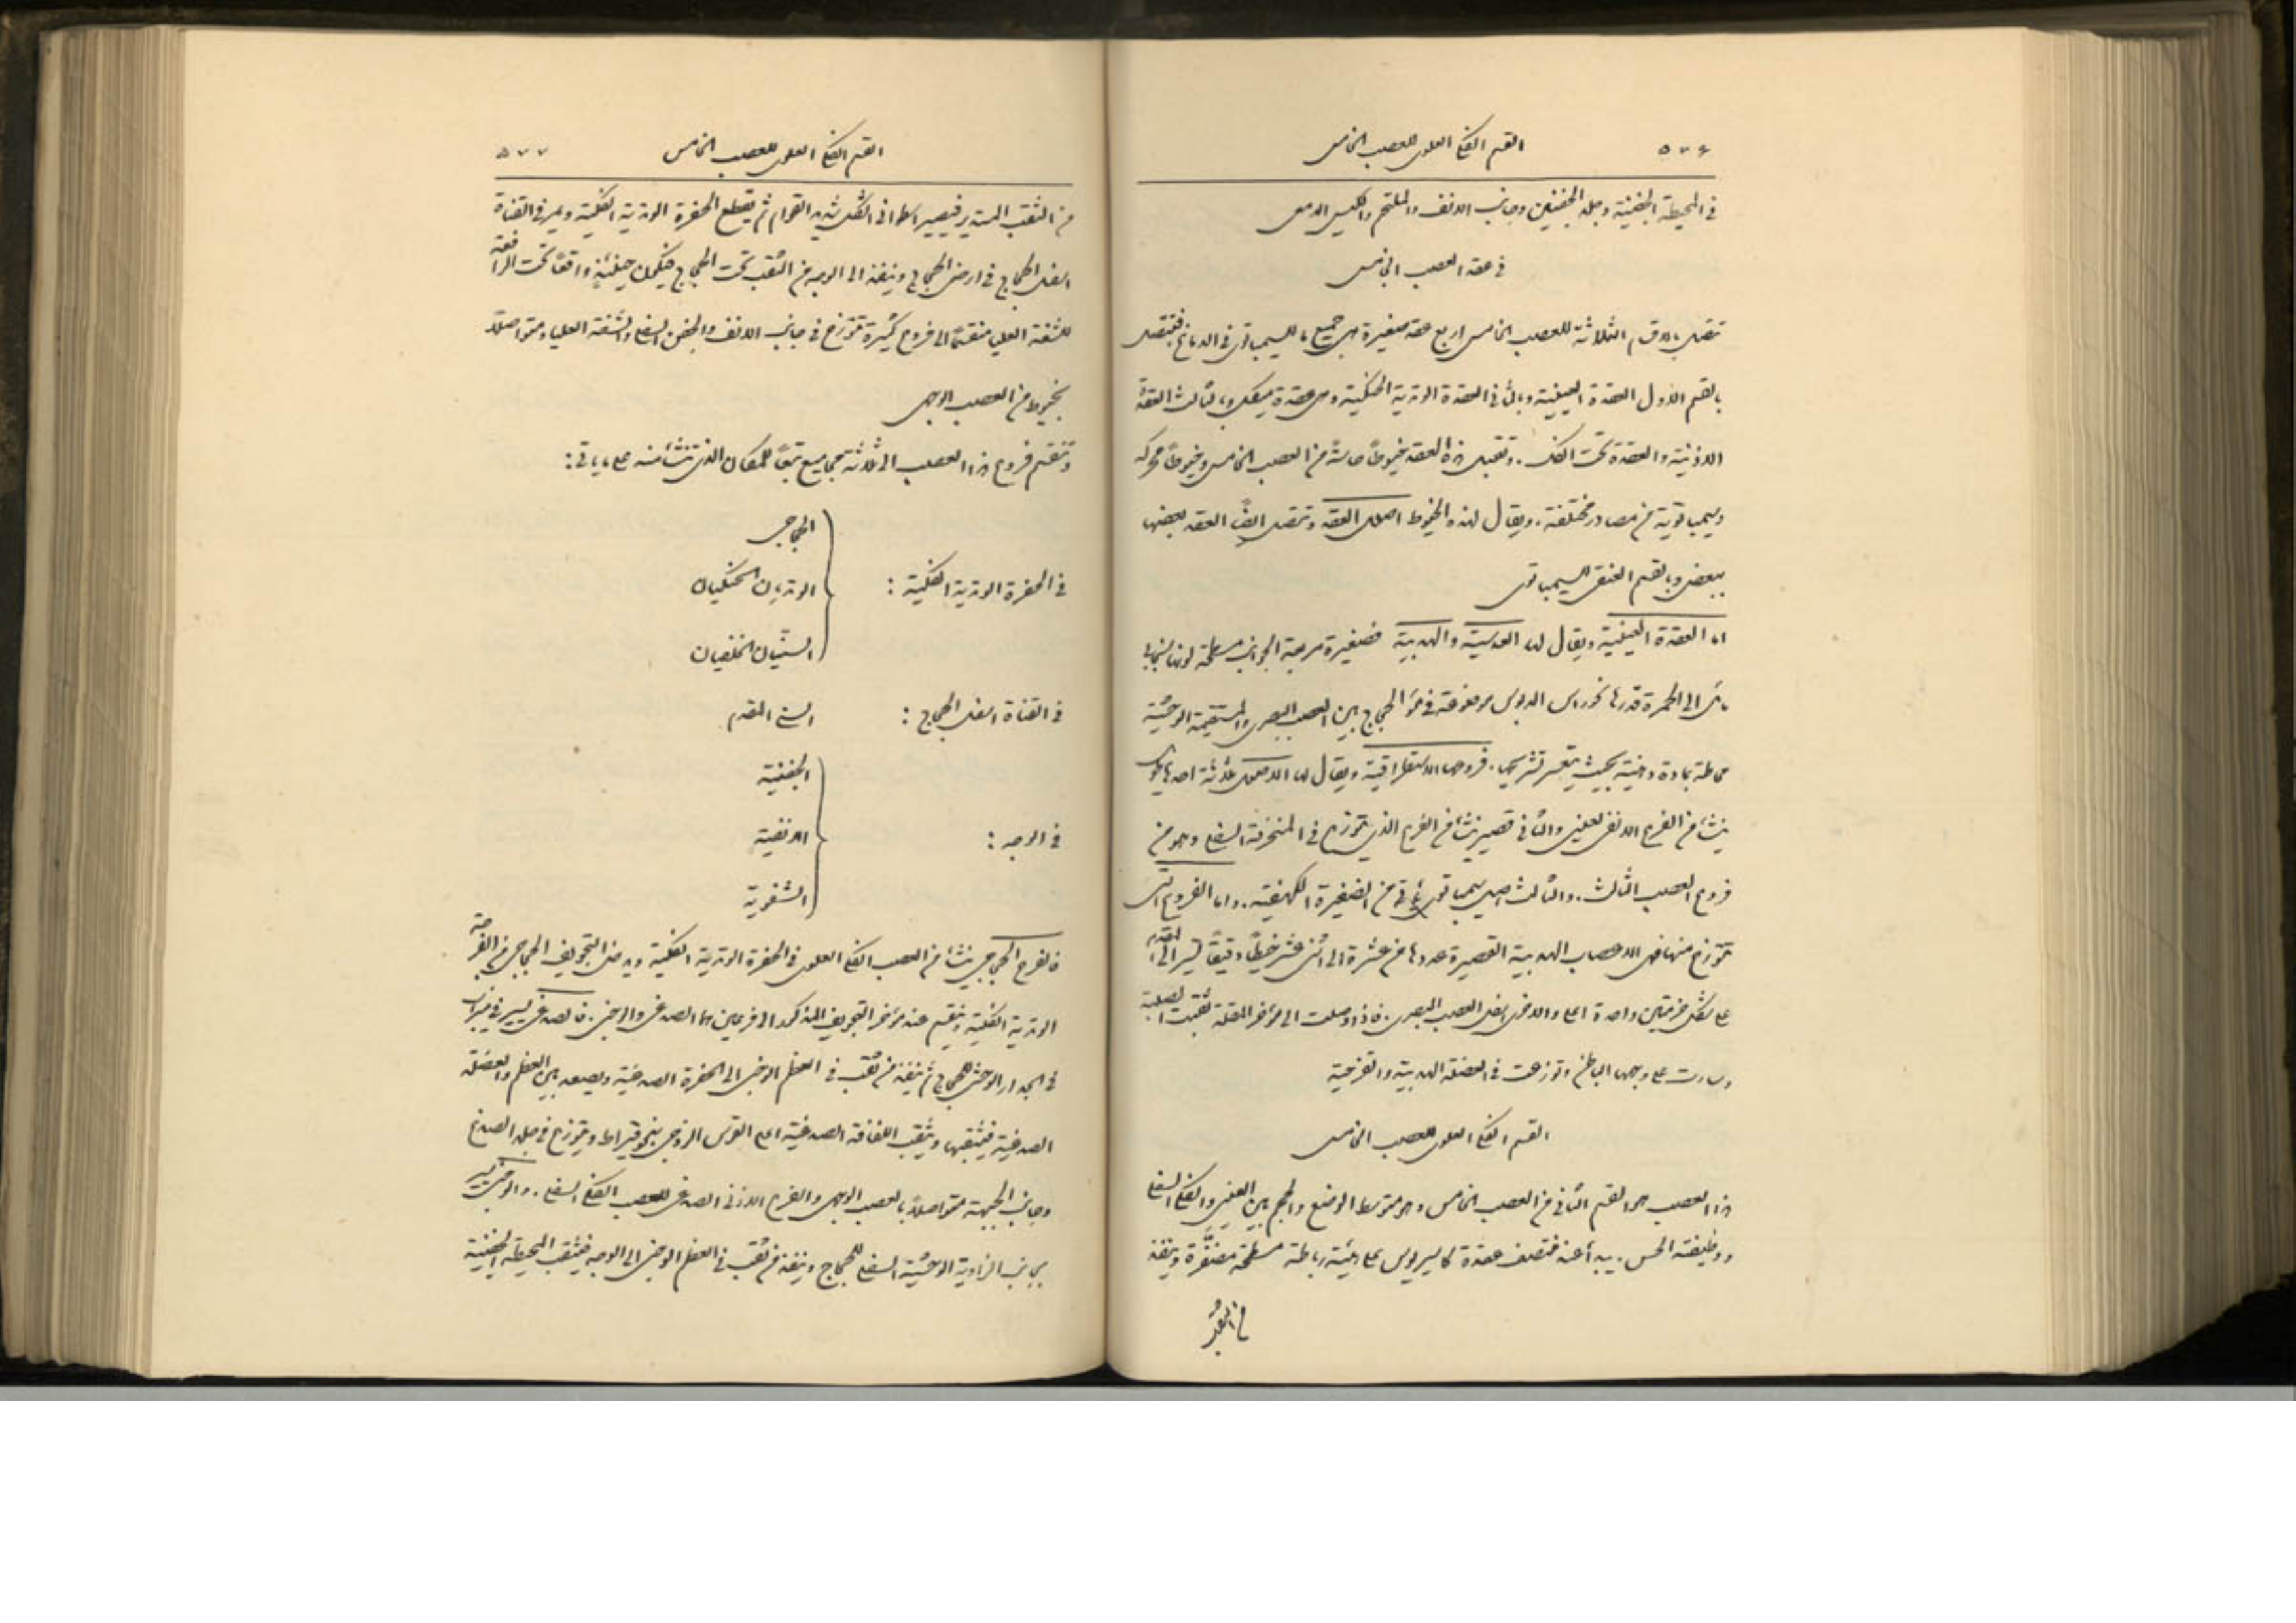 ٥٧٦ القسم الفكي العلوي للعصب الخامس
في المحيطة الجفنية وجلد الجفنين وجانب الانف والملتحم والكيس الدمعي
في عقد العصب الخامس
تتصل بالاقسام الثلاثة للعصب الخامس اربع عقد صغيرة هي جميع ما للسيمباتوي في الدماغ فتتصل
بالقسم الاول العقدة العينية وبالثاني العقدة الوتدية الحنكية وهي عقدة ميكل وبالثالث العقدة
الاذنية والعقدة تحت الفك. وتقبل هذه العقد خيوطًا حاسة من العصب الخامس وخيوطًا محركة
وسيمباتوية من مصادر مختلفة. ويقال لهذه الخيوط اصول العقد وتتصل ايضًا العقد بعضها
ببعض وبالقسم العنقي للسيمباتوي
اما العقدة العينية ويقال لها العدسية والهدبية فصغيرة مربعة الجوانب مسطحة لونها سنجابي
مائل الى الحمرة قدرها نحو راس الدبوس موضوعة في مؤخر الحجاج بين العصب البصري والمستقيمة الوحشية
محاطة بمادة دهنية بحيث يتعسر تشريحها. فروعها الاستطراقية ويقال لها الاصول ثلاثة احدها طويل
ينشأ من الفرع الانفي العيني والثاني قصير ينشأ من الفرع الذي يتوزع في المنحرفة السفلى وهو من
فروع العصب الثالث. والثالث اصل سيمباتوي يأتي من الضفيرة الكهفية. واما الفروع التي
تتوزع منها فهي الاعصاب الهدبية القصيرة عددها من عشرة الى اثني عشر خيطًا دقيقًا تسير الى المقدم
على شكل حزمتين واحدة اعلى والاخرى اسفل العصب البصري. فاذا وصلت الى مؤخر المقلة ثقبت الصلبة
وسارت على وجهها الباطن وتوزعت في العضلة الهدبية والقزحية
القسم الفكي العلوي للعصب الخامس
هذا العصب هو القسم الثاني من العصب الخامس وهو متوسط الوضع والحجم بين العيني والفكي السفلي
ووظيفته الحس. يبدأ عند منتصف عقدة كاسيريوس على هيئة رباطة مسطحة مضفرة وينفذ
من الثقب
القسم الفكي العلوي للعصب الخامس ٥٧٧
من الثقب المستدير فيصير اسطواني الشكل شديد القوام ثم يقطع الحفرة الوتدية الفكية ويمر في القناة
اسفل الحجاج في ارض الحجاج وينفذ الى الوجه من الثقب تحت الحجاج فيكون حينئذٍ واقعًا تحت الرافعة
للشفة العليا منقسمًا الى فروع كثيرة تتوزع في جانب الانف والجفن السفلي والشفة العليا ومتواصلاً
بخيوط من العصب الوجهي
وتنقسم فروع هذا العصب الى ثلاثة مجاميع تبعًا للمكان الذي تنشأ منه على ما ياتي:
الحجاجي
في الحفرة الوتدية الفكية: الوتديان الحنكيان
السنيان الخلفيان
في القناة اسفل الحجاج: السني المقدم
الجفنية
في الوجه: الانفية
الشفوية
فالفرع الحجاجي ينشأ من العصب الفكي العلوي في الحفرة الوتدية الفكية ويدخل التجويف الحجاجي من الفرضة
الوتدية الفكية وينقسم عند مؤخر التجويف المذكور الى فرعين هما الصدغي والوجني. فالصدغي يسير في ميزاب
في الجدار الوحشي للحجاج ثم ينفذ من ثقب في العظم الوجني الى الحفرة الصدغية ويصعد بين العظم والعضلة
الصدغية فيثقبها ويثقب اللفافة الصدغية اعلى القوس الزوجي بنحو قيراط ويتوزع في جلد الصدغ
وجانب الجبهة متواصلاً بالعصب الوجهي والفرع الاذني الصدغي للعصب الفكي السفلي. والوجني يسير
بجانب الزاوية الوحشية السفلى للحجاج وينفذ من ثقب في العظم الوجني الى الوجه فيثقب المحيطة الجفنية